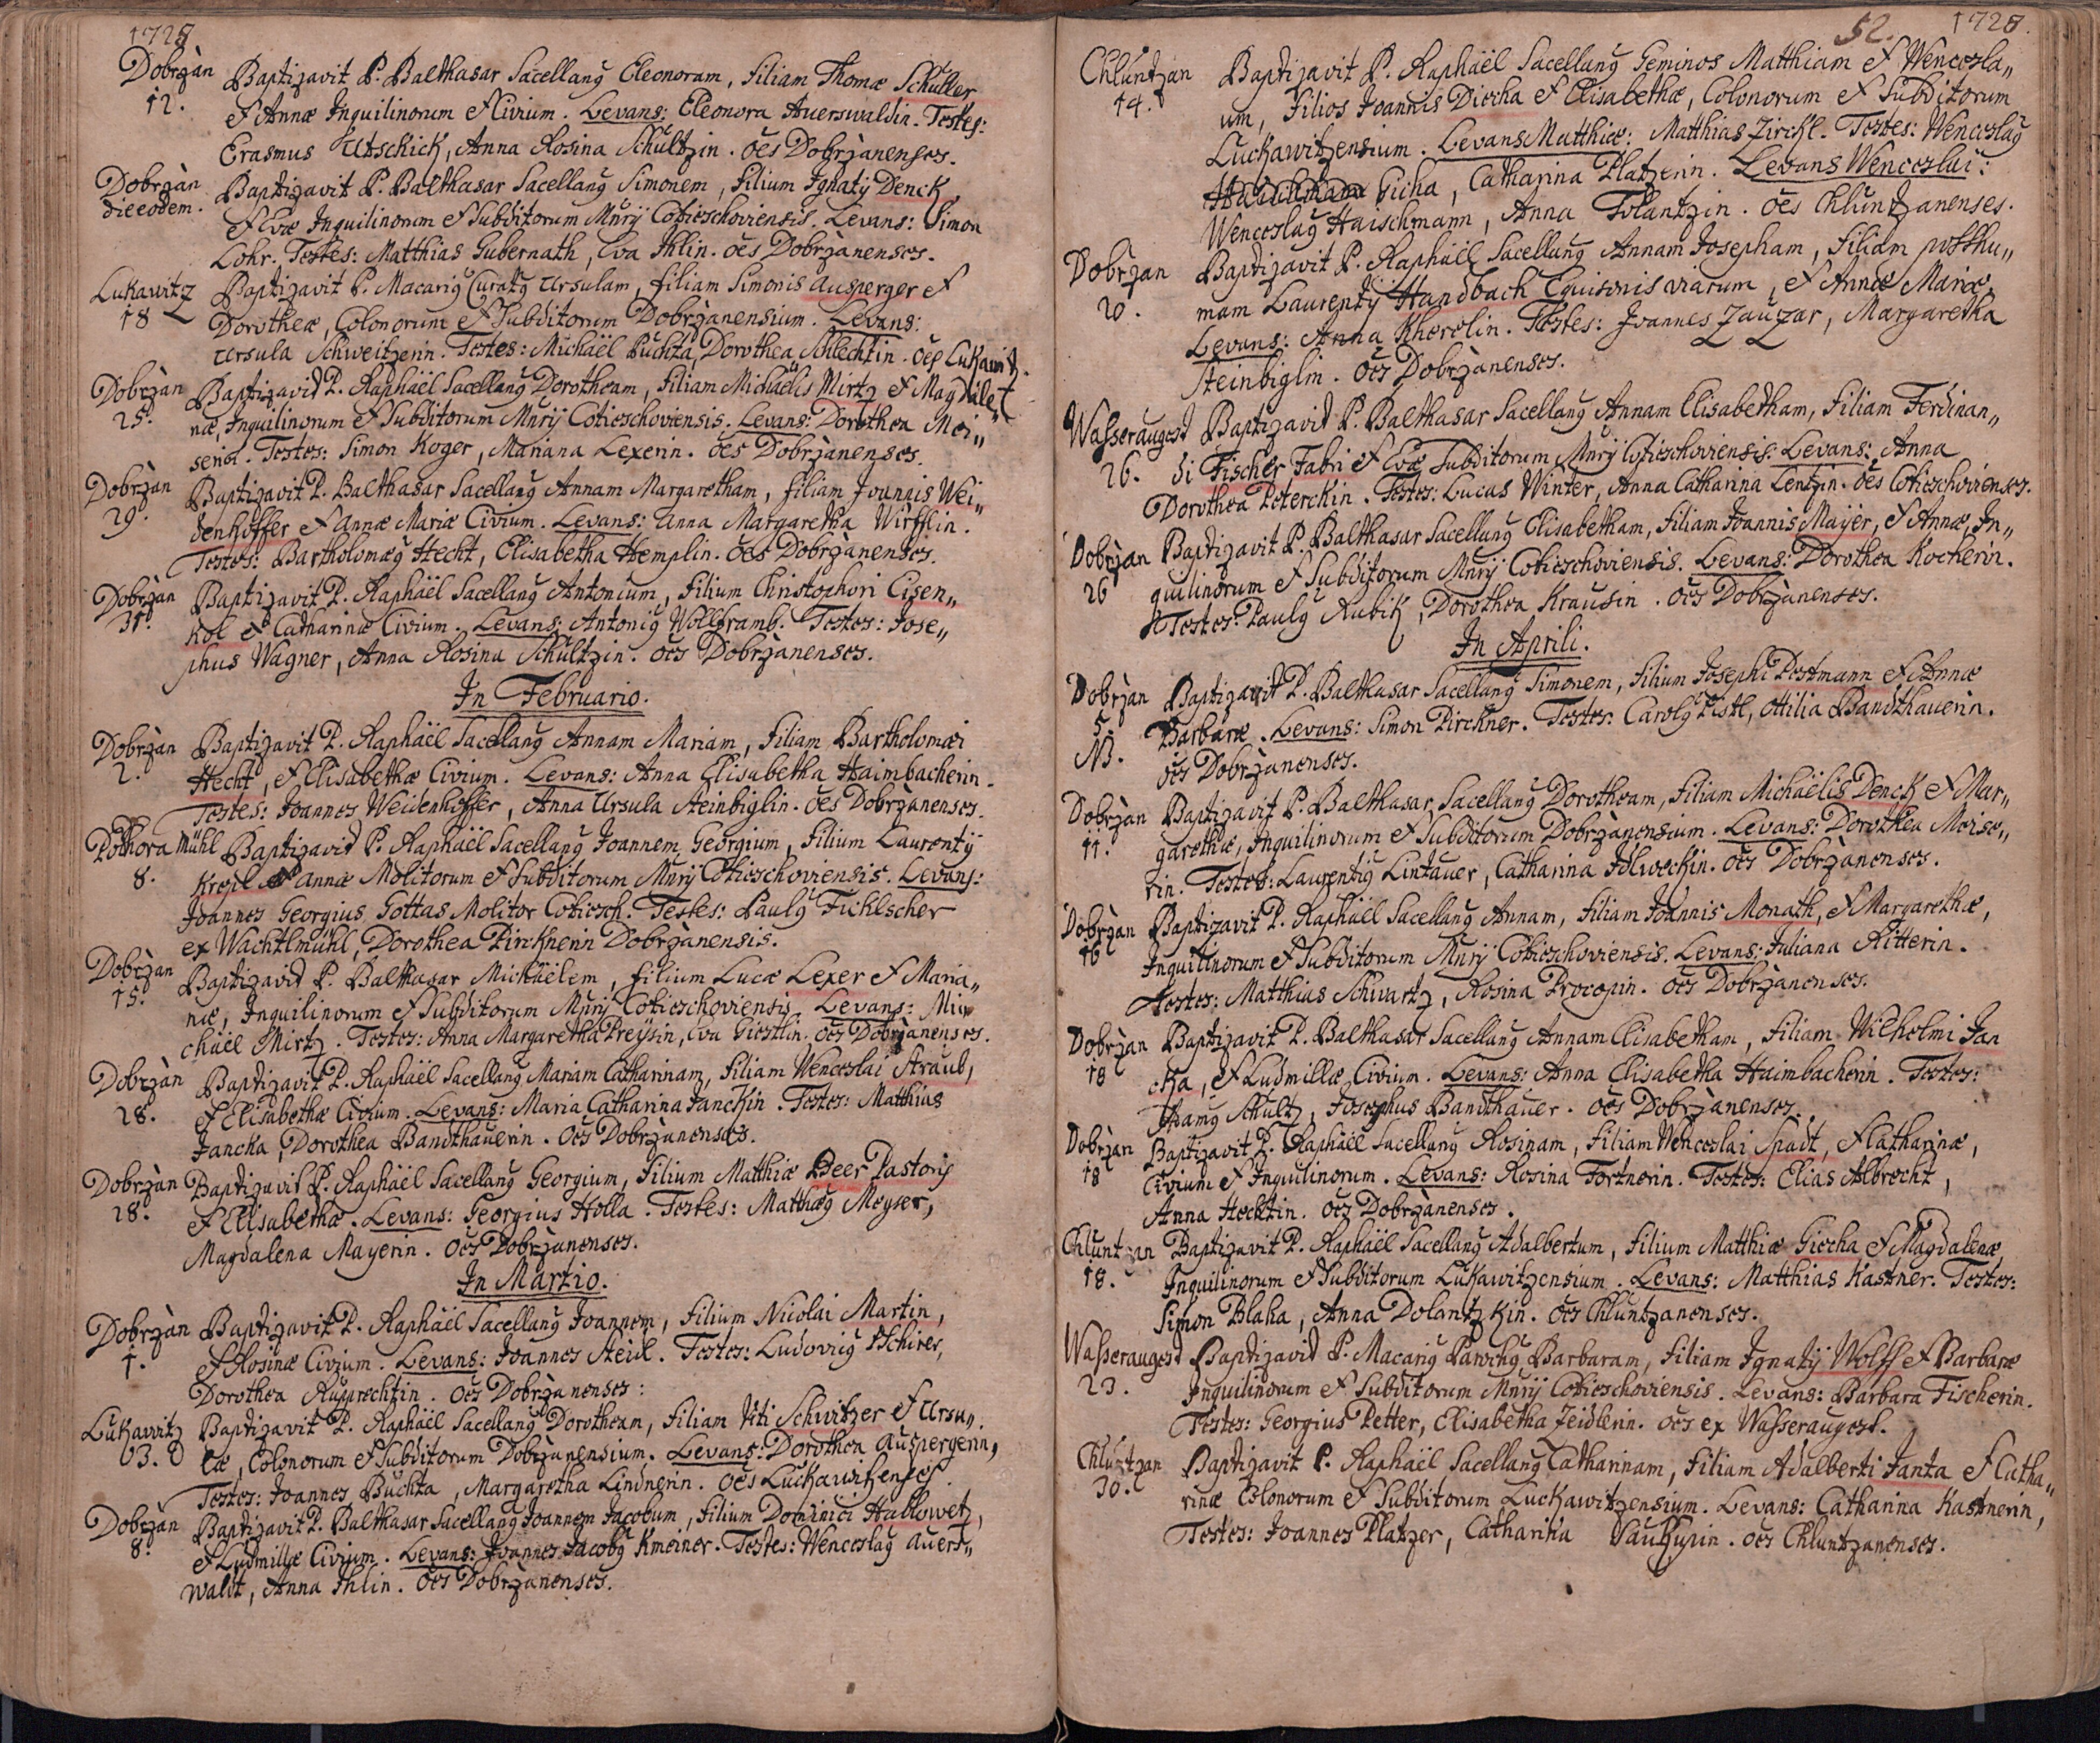 1728
Dobrzàn Baptizavit P. Balthasar Sacellang Eleonoram, filiam Thomæ Schuller
12. et Annæ Inquilinorum et Civium. Levans: Eleonora Auerswaldin. Testes:
Erasmus Utschick, Anna Rosina Schultzin. oēs Dobrzànenses.
Dobrzàn Baptizavit P. Balthasar Sacellang Simonem, filium Ignatij Denck
die eodem. et Evæ Inquilinorum et Subditorum Mnrij Cotieschoviensis. Levans: Simon
Lohr. Testes: Matthias Gubernath, Eva Ihlin. oēs Dobrzànenses.
Lukawitz Baptizavit P. Macarig Curatg Ursulam, filiam Simonis Ausperger et
18 Dorotheæ, Colonorum et Subditorum Dobrzànensium. Levans:
Ursula Schweitzerin. Testes: Michaël Puchta, Dorothea Schlechtin. oēs Lukawitz.
Dobrzàn Baptizavid P. Raphaël Sacellang Dorotheam, filiam Michaëlis Mirtz et Magdale„
25. næ, Inquilinorum et Subditorum Mnrij Cotieschoviensis. Levans: Dorothea Mei„
serin. Testes: Simon Koger, Mariana Lexerin. oēs Dobrzànenses.
Dobrzàn Baptizavit P. Balthasar Sacellang Annam Margaretham, filiam Joannis Wei„
29. denhoffer et Annæ Mariæ Civium. Levans: Anna Margaretha Würfflin.
Testes: Bartholomæg Hecht, Elisabetha Hemplin. oēs Dobrzànenses.
Dobrzàn Baptizavit P. Raphaël Sacellang Antonium, filium Christophori Eisen„
31. kol et Catharinæ Civium. Levans: Antonig Wollframb. Testes: Jose„
phus Wagner, Anna Rosina Schultzin. oēs Dobrzànenses.
In Februario.
Dobrzàn Baptizavit P. Raphaël Sacellang Annam Mariam, filiam Bartholomæi
2. Hecht, et Elisabethæ Civium. Levans: Anna Elisabetha Haimbacherin.
Testes: Joannes Weidenhoffer, Anna Ursula Steinbiglin. oēs Dobrzànenses.
Pothora Mühl Baptizavid P. Raphaël Sacellang Joannem Georgium, filium Laurentij
8. Kreil et Annæ Molitorum et Subditorum Mnrij Cotieschoviensis. Levans:
Joannes Georgius Gottas Molitor Cotiesch. Testes: Paulg Fichlscher
ex Wachtlmühl, Dorothea Pircknerin Dobrzànensis.
Dobrzàn Baptizavid P. Balthasar Michaëlem, filium Lucæ Lexer et Maria„
15. næ, Inquilinorum et Subditorum Mnrij Cotieschoviensis. Levans: Mi„
chaël Mirtz. Testes: Anna Margaretha Preysin, Eva Giestlin. oēs Dobrzànenses.
Dobrzàn Baptizavit P. Raphaël Sacellang Mariam Catharinam, filiam Wenceslai Straub,
28. et Elisabethæ Civium. Levans: Maria Catharina Janckin. Testes: Matthias
Jancka, Dorothea Bandthauerin. oēs Dobrzànenses.
Dobrzàn Baptizavit P. Raphaël Sacellang Georgium, filium Matthiæ Beer Pastoris
28. et Elisabethæ. Levans: Georgius Holla. Testes: Matthæg Meyser,
Magdalena Mayerin. oēs Dobrzànenses.
In Martio.
Dobrzàn Baptizavit P. Raphaël Sacellang Joannem, filium Nicolai Martin,
1. et Rosinæ Civium. Levans: Joannes Steidl. Testes: Ludovicg Tschirer,
Dorothea Rupprechtin. oēs Dobrzànenses:
Lukawitz Baptizavit P. Raphaël Sacellang Dorotheam, filiam Viti Schwitzer et Ursu„
03. læ, Colonorum et Subditorum Dobrzànensium. Levans: Dorothea Auspergerin,
Testes: Joannes Buchta, Margaretha Lindnerin. oēs Luckawitzenses
Dobrzàn Baptizavit P. Balthasar Sacellang Joannem Jacobum, filium Dominici Hallowetz,
8. et Ludmillæ Civium. Levans: Joannes Jacobg Kmeiner. Testes: Wenceslag Auers„
waldt, Anna Ihlin. oēs Dobrzànenses.
52. 1728.
Chluntzan Baptizavit P. Raphaël Sacellang Geminos Matthiam et Wencesla„
14. um, filios Joannis Diecha et Elisabethæ, Colonorum et Subditorum
Luckawitzensium. Levans Matthiæ: Matthias Zirckl. Testes: Wenceslag
Gicha, Catharina Platzerin. Levans Wenceslai:
Wenceslag Haischmann, Anna Tolantzin. oēs Chluntzanenses.
Dobrzan Baptizavit P. Raphaël Sacellang Annam Josepham, filiam posthu„
20. mam Laurentij Handbach Equisonis viarum, et Annæ Mariæ,
Levans: Anna Kherelin. Testes: Joannes Zauzar, Margaretha
Steinbiglin. oēs Dobrzànenses.
Wasseraugest Baptizavid P. Balthasar Sacellang Annam Elisabetham, filiam Ferdinan„
26. di Fischer Fabri et Evæ Subditorum Mnrij Cotieschoviensis. Levans: Anna
Dorothea Peterckin. Testes: Lucas Winter, Anna Catharina Lentzin. oēs Cotieschovienses.
Dobrzan Baptizavit P. Balthasar Sacellang Elisabetham, filiam Joannis Mayer, et Annæ, In„
26 quilinorum et Subditorum Mnrij Cotieschoviensis. Levans: Dorothea Kocherin.
Testes: Paulg Kubik, Dorothea Krausin. oēs Dobrzànenses.
In Aprili.
Dobrzan Baptizavit P. Balthasar Sacellang Simonem, filium Josephi Postmann et Annæ
5. Barbaræ. Levans: Simon Pirckner. Testes: Carolg Pistl, Ottilia Bandthauerin.
NB. oēs Dobrzanenses.
Dobrzàn Baptizavit P. Balthasar Sacellang Dorotheam, filiam Michaëlis Denck et Mar„
11. garethæ, Inquilinorum et Subditorum Dobrzanensium. Levans: Dorothea Meise„
rin. Testes: Laurentig Lintauer, Catharina Tolweckin. oēs Dobrzànenses.
Dobrzàn Baptizavit P. Raphaël Sacellang Annam, filiam Joannis Monath, et Margarethæ,
16 Inquilinorum et Subditorum Mnrij Cotieschoviensis. Levans: Juliana Ritterin.
Testes: Matthias Schwartz, Rosina Procopin. oēs Dobrzànenses.
Dobrzàn Baptizavit P. Balthasar Sacellang Annam Elisabetham, filiam Wilhelmi Jan
18 cka, et Ludmillæ Civium. Levans: Anna Elisabetha Haimbacherin. Testes:
Adamg Schultz, Josephus Bandthauer. oēs Dobrzànenses.
Dobrzàn Baptizavit P. Raphaël Sacellang Rosinam, filiam Wenceslai Spadt, et Catharinæ,
18 Civium et Inquilinorum. Levans: Rosina Fortnerin. Testes: Elias Albrecht,
Anna Hecktin. oēs Dobrzànenses.
Chluntzan Baptizavit P. Raphaël Sacellang Adalbertum, filium Matthiæ Giecha et Magdalenæ,
18. Inquilinorum et Subditorum Lukawitzensium. Levans: Matthias Kastner. Testes:
Simon Blaha, Anna Dolantzkin. oēs Chluntzanenses.
Wasseraugest Baptizavid P. Macarig Parochg Barbaram, filiam Ignatij Wolff et Barbaræ
23. Inquilinorum et Subditorum Mnrij Cotieschoviensis. Levans: Barbara Fischerin.
Testes: Georgius Petter, Elisabetha Zeidlerin. oēs ex Wasseraugest.
Chluntzan Baptizavit P. Raphaël Sacellang Catharinam, filiam Adalberti Janta et Catha„
30. rinæ Colonorum et Subditorum Luckawitzensium. Levans: Catharina Kastnerin,
Testes: Joannes Platzer, Catharina Vaukupin. oēs Chluntzanenses.